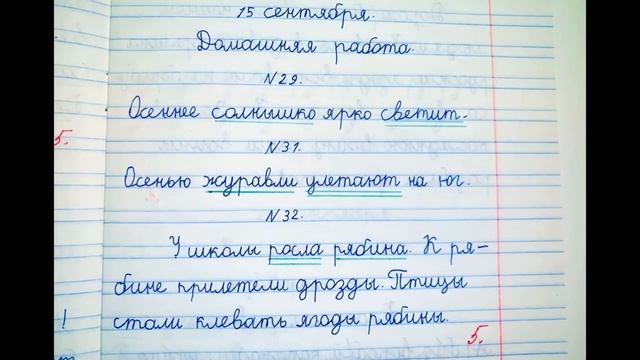 15 сентября.
Домашняя работа.
N29.
Осеннее солнышко ярко светит.
N31.
5.
Осенью журавли улетают на юг.
N32.
У школы росла рябина. К ря-
бине прилетели дрозды. Птицы
стали клевать ягоды рябины.
!
5.